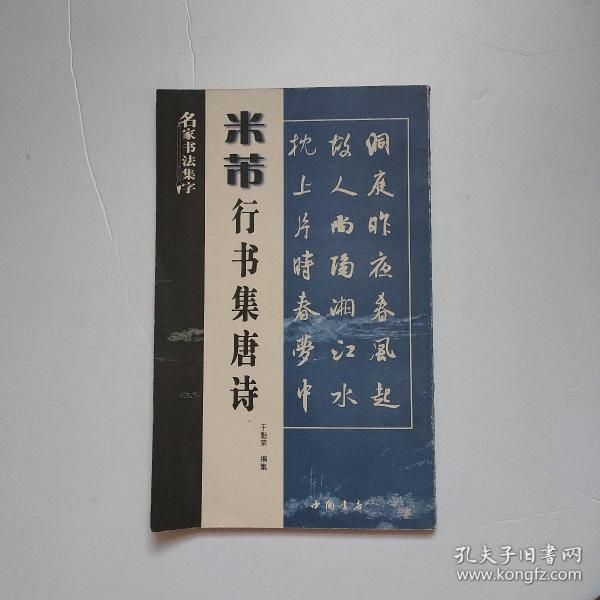 名家书法集字
米芾
行书集唐诗
于魁荣 编集
洞庭昨夜春风起
故人尚隔湘江水
枕上片時春夢中
中國書店
孔夫子旧书网
www.kongfz.com